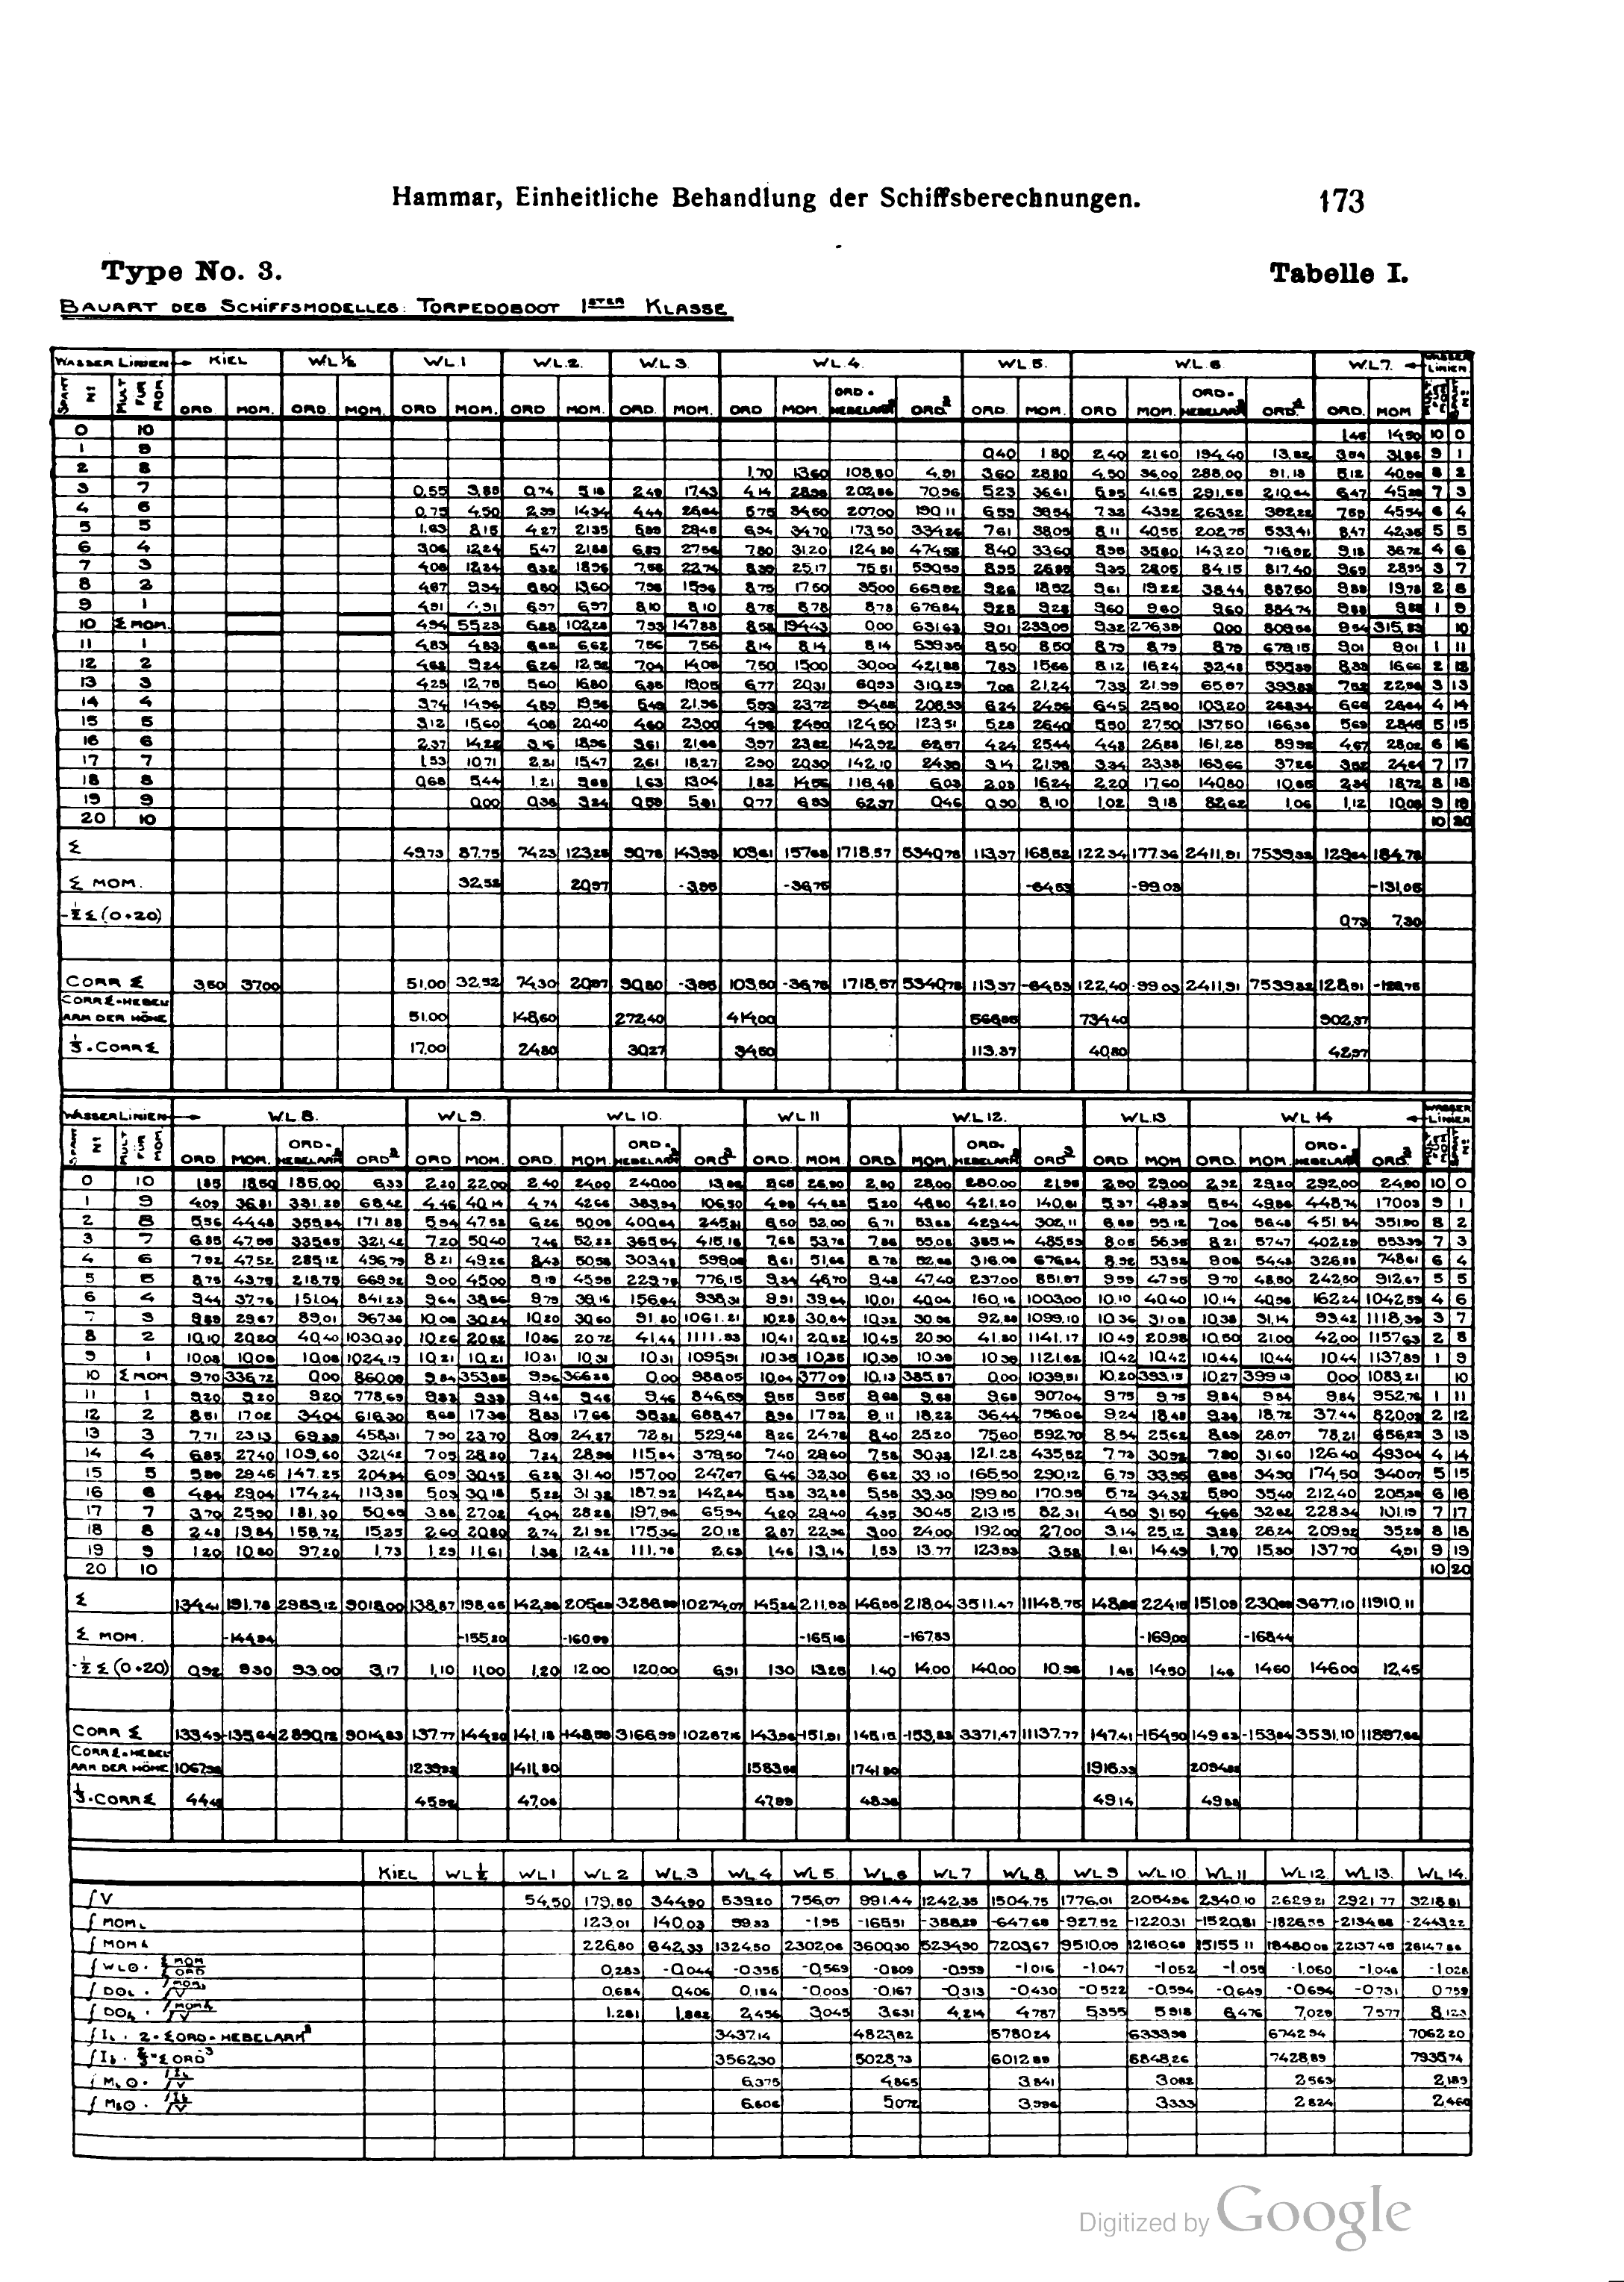 Hammar, Einheitliche Behandlung der Schiffsberechnungen. 173
Type No. 3. Tabelle I.
BAUART DES SCHIFFSMODELLES: TORPEDOBOOT 1STER KLASSE
WASSER LINIEN KIEL WL½ WL.1 WL.2. WL.3 WL.4. WL5. WL.6. WL.7. WASSER LINIEN
SPANT Nº MULT FÜR MOM ORD. MOM. ORD. MOM. ORD MOM. ORD MOM. ORD. MOM. ORD MOM. ORD × HEBELARM² ORD³ ORD. MOM. ORD MOM. ORD × HEBELARM² ORD³ ORD. MOM
0 10 1,45 14,50 10 0
1 9 0,40 1 80 2,40 21,60 194,40 13,82 9 1
2 8 1,70 13,60 108,80 4,91 3,60 28,80 4,50 36,00 288,00 91,13 5,12 8 2
3 7 0,55 0,74 5,18 2,49 17,43 4,14 28,98 202,86 70,96 5,23 36,61 5,95 41,65 291,55 210,64 6,47 7 3
4 6 0,75 4,50 2,39 14,34 4,44 26,64 5,75 34,50 207,00 190,11 6,59 39,54 7,32 43,92 263,52 7,59 45,54 6 4
5 5 1,63 8,15 4,27 21,35 5,69 28,45 6,94 34,70 173,50 334,26 7,61 38,05 8,11 40,55 202,75 533,41 8,47 42,35 5 5
6 4 3,06 12,24 5,47 21,88 6,89 27,56 7,80 31,20 124,80 8,40 33,60 8,95 35,80 143,20 9,18 36,72 4 6
7 3 4,08 12,24 6,32 18,96 7,58 22,74 8,39 25,17 75,51 8,95 26,85 9,35 28,05 84,15 817,40 9,65 28,95 3 7
8 2 4,67 9,34 6,80 13,60 7,98 15,96 8,75 17,50 35,00 669,92 9,26 18,52 9,61 19,22 38,44 887,50 9,89 19,78 2 8
9 1 4,91 4,91 6,97 6,97 8,10 8,10 8,78 8,78 8,78 676,84 9,28 9,28 9,60 9,60 9,60 884,74 9,88 9,88 1 9
10 Σ MOM. 4,94 55,23 6,88 102,28 7,93 147,88 8,58 194,43 0,00 631,63 9,01 233,05 9,32 276,38 0,00 9,54 315,83 10
11 1 4,83 4,83 6,62 6,62 7,56 7,56 8,14 8,14 8,14 539,35 8,50 8,50 8,79 8,79 8,79 679,15 9,01 9,01 1 11
12 2 4,62 9,24 6,26 12,52 7,04 14,08 7,50 15,00 30,00 421,88 7,83 15,66 8,12 16,24 32,48 8,33 16,66 2 12
13 3 4,25 12,75 5,60 16,80 6,35 19,05 6,77 20,31 60,93 310,29 7,08 21,24 7,33 21,99 65,97 3 13
14 4 3,74 14,96 4,89 19,56 5,49 21,96 5,93 23,72 94,88 208,53 6,24 24,96 6,45 25,80 103,20 268,34 6,66 26,64 4 14
15 5 3,12 15,60 4,08 20,40 4,60 23,00 4,98 24,90 124,50 123,51 5,28 26,40 5,50 27,50 137,50 166,38 5,69 28,45 5 15
16 6 2,37 14,22 3,16 18,96 3,61 21,66 3,97 23,82 142,92 62,57 4,24 25,44 4,48 26,88 161,28 4,67 28,02 6 16
17 7 1,53 10,71 2,21 15,47 2,61 18,27 2,90 20,30 142,10 24,39 3,14 21,98 3,34 23,38 163,66 37,26 3,52 24,64 7 17
18 8 0,68 5,44 1,21 9,68 1,63 13,04 1,82 14,56 116,48 6,03 2,03 16,24 2,20 17,60 140,80 10,65 2,34 18,72 8 18
19 9 0,00 0,36 3,24 0,59 5,31 0,77 6,93 62,37 0,46 0,90 8,10 1,02 9,18 82,62 1,06 1,12 10,08 9 19
20 10 10 20
Σ 49,73 87,75 74,23 123,25 90,78 143,93 103,61 157,68 1718,57 5340,78 113,37 168,52 122,34 177,36 2411,91 7539,83 129,64 184,78
Σ MOM. 32,52 20,97 -3,95 -36,75 -64,53 -99,03 -131,05
-½ Σ (0+20) 0,73 7,30
CORR Σ 3,50 37,00 51,00 32,52 74,30 20,97 90,80 -3,95 103,50 -36,75 1718,57 5340,78 113,37 -64,53 122,40 -99,03 2411,91 7539,83 128,91
CORR Σ × HEBEL ARM DER HÖHE 51,00 148,60 272,40 414,00 566,85 734,40 902,37
⅓ · CORR Σ 17,00 24,80 30,27 34,50 113,37 40,80 42,97
WASSER LINIEN WL 8. WL 9. WL 10. WL 11 WL 12. WL 13 WL 14 WASSER LINIEN
SPANT Nº MULT FÜR MOM. ORD MOM. ORD × HEBELARM² ORD³ ORD MOM. ORD. MOM. ORD × HEBELARM² ORD³ ORD. MOM ORD. MOM. ORD × HEBELARM² ORD³ ORD. MOM ORD. MOM. ORD × HEBELARM² ORD³
0 10 1,85 18,50 185,00 6,33 2,20 22,00 2,40 24,00 240,00 13,82 2,65 26,50 2,80 28,00 280,00 21,95 2,90 29,00 2,92 29,20 292,00 24,90 10 0
1 9 4,09 36,81 331,29 68,42 4,46 40,14 4,74 42,66 383,94 106,50 4,98 44,82 5,20 46,80 421,20 140,61 5,37 48,33 5,54 49,86 448,74 170,03 9 1
2 8 5,56 44,48 355,84 171,88 5,94 47,52 6,26 50,08 400,64 245,31 6,50 52,00 6,71 53,68 429,44 302,11 6,89 55,12 7,06 56,48 451,84 8 2
3 7 6,85 47,95 335,65 321,42 7,20 50,40 7,46 52,22 365,54 415,16 7,68 53,76 7,86 55,02 385,14 485,59 8,05 56,35 8,21 57,47 402,29 553,39 7 3
4 6 7,92 47,52 285,12 496,79 8,21 49,26 8,43 50,58 303,48 8,61 51,66 8,78 52,68 316,08 676,84 8,92 53,52 9,08 54,48 326,88 748,61 6 4
5 5 8,75 43,75 218,75 669,92 9,00 45,00 9,19 45,95 229,75 776,15 9,34 46,70 9,48 47,40 237,00 851,97 9,59 47,95 9,70 48,50 242,50 912,67 5 5
6 4 9,44 37,76 151,04 841,23 9,64 38,56 9,79 39,16 156,64 938,31 9,91 39,64 10,01 40,04 160,16 1003,00 10,10 40,40 10,14 40,56 162,24 1042,59 4 6
7 3 9,89 29,67 89,01 967,36 10,08 30,24 10,20 30,60 91,80 1061,21 10,28 30,84 10,32 30,96 92,88 1099,10 10,36 31,08 10,38 31,14 93,42 1118,39 3 7
8 2 10,10 20,20 40,40 1030,30 10,26 20,52 10,36 20,72 41,44 10,41 20,82 10,45 20,90 41,80 1141,17 10,49 20,98 10,50 21,00 42,00 1157,63 2 8
9 1 10,08 10,08 10,08 1024,19 10,21 10,21 10,31 10,31 10,31 1095,91 10,35 10,35 10,39 10,39 10,39 1121,62 10,42 10,42 10,44 10,44 10,44 1137,89 1 9
10 Σ MOM 9,70 336,72 0,00 9,84 353,85 9,96 366,28 0,00 988,05 10,04 377,09 10,13 385,87 0,00 1039,51 10,20 393,15 10,27 399,13 0,00 1083,21 10
11 1 9,20 9,20 9,20 778,69 9,33 9,33 9,46 9,46 9,46 846,59 9,55 9,55 9,68 9,68 9,68 907,04 9,75 9,75 9,84 9,84 9,84 952,76 1 11
12 2 8,51 17,02 34,04 616,30 8,68 17,36 8,83 17,66 35,32 688,47 8,96 17,92 9,11 18,22 36,44 756,06 9,24 18,48 9,36 18,72 37,44 820,03 2 12
13 3 7,71 23,13 69,39 458,31 7,90 23,70 8,09 24,27 72,81 529,48 8,26 24,78 8,40 25,20 75,60 592,70 8,54 25,62 8,69 26,07 78,21 656,23 3 13
14 4 6,85 27,40 109,60 321,42 7,05 28,20 7,24 28,96 115,84 379,50 7,40 29,60 7,58 30,32 121,28 435,52 7,73 30,92 7,90 31,60 126,40 493,04 4 14
15 5 5,89 29,45 147,25 204,34 6,09 30,45 6,28 31,40 157,00 247,67 6,46 32,30 6,62 33,10 165,50 290,12 6,79 33,95 6,98 34,90 174,50 340,07 5 15
16 6 4,84 29,04 174,24 113,38 5,03 30,18 5,22 31,32 187,92 142,24 5,38 32,28 5,55 33,30 199,80 170,95 5,72 34,32 5,90 35,40 212,40 205,38 6 16
17 7 3,70 25,90 181,30 50,65 3,86 27,02 4,04 28,28 197,96 65,94 4,20 29,40 4,35 30,45 213,15 82,31 4,50 31,50 4,66 32,62 228,34 101,19 7 17
18 8 2,48 19,84 158,72 15,25 2,60 20,80 2,74 21,92 175,36 20,12 2,87 22,96 3,00 24,00 192,00 27,00 3,14 25,12 3,28 26,24 209,92 35,29 8 18
19 9 1,20 10,80 97,20 1,73 1,29 11,61 1,38 12,42 111,78 2,63 1,46 13,14 1,53 13,77 123,93 3,58 1,61 14,49 1,70 15,30 137,70 4,91 9 19
20 10 10 20
Σ 134,41 191,78 2983,12 9018,00 138,87 198,65 205,69 10274,07 211,93 146,55 218,04 3511,47 11148,75 224,15 151,09 3677,10 11910,11
Σ MOM. -144,94 -155,20 -160,99 -165,16 -167,83 -169,00 -168,44
-½ Σ (0+20) 0,92 9,30 93,00 3,17 1,10 11,00 1,20 12,00 120,00 6,91 1,30 13,25 1,40 14,00 140,00 10,98 1,45 14,50 1,46 14,60 146,00 12,45
CORR Σ 133,49 -135,64 2890,12 9014,83 137,77 -144,20 141,18 3166,99 10267,16 143,96 -151,91 145,15 -153,83 3371,47 11137,77 147,41 -154,50 149,63 -153,84 3531,10 11897,66
CORR Σ × HEBEL ARM DER HÖHE 1239,93 1411,80 1741,80 1916,33
⅓ · CORR Σ 44,49 45,92 47,06 47,99 48,38 49,14 49,88
KIEL WL½ WL 1 WL 2 WL 3 WL 4 WL 5. WL 6 WL 7 WL 8. WL 9 WL 10 WL 11 WL 12 WL 13. WL 14.
∫ V 54,50 179,80 344,90 539,20 756,07 991,44 1242,35 1504,75 1776,01 2054,96 2340,10 2629,21 2921,77 3218,81
∫ MOM L 123,01 140,03 99,83 -1,95 -165,51 -388,29 -647,68 -927,52 -1220,31 -1520,81 -1826,55 -2134,88 -2443,22
∫ MOM h 226,80 642,33 1324,50 2302,06 3600,30 5234,90 7203,67 9510,09 12160,68 15155,11 18480,08 22137,45 26147,86
∫ WL⊙ · Σ MOM / Σ ORD 0,283 -0,044 -0,355 -0,569 -0,809 -0,959 -1,016 -1,047 -1,052 -1,055 -1,060 -1,048 -1,028
∫ D⊙L · ∫MOM L / ∫V 0,684 0,406 0,184 -0,003 -0,167 -0,313 -0,430 -0,522 -0,594 -0,649 -0,694 -0,731 0,759
∫ D⊙h · ∫MOM h / ∫V 1,261 1,862 2,456 3,045 3,631 4,214 4,787 5,355 5,918 6,476 7,029 7,577 8,123
∫ I L · 2 · Σ ORD × HEBELARM² 3437,14 4823,82 5780,24 6333,98 6742,94 7062,20
∫ I b · ⅔ · Σ ORD³ 3562,30 5028,73 6012,89 6848,26 7428,89 7935,74
∫ M L ⊙ · ∫I L / ∫V 6,375 4,865 3,841 3,082 2,563 2,189
∫ M b ⊙ · ∫I b / ∫V 6,606 5,072 3,996 3,333 2,824 2,460
Digitized by Google